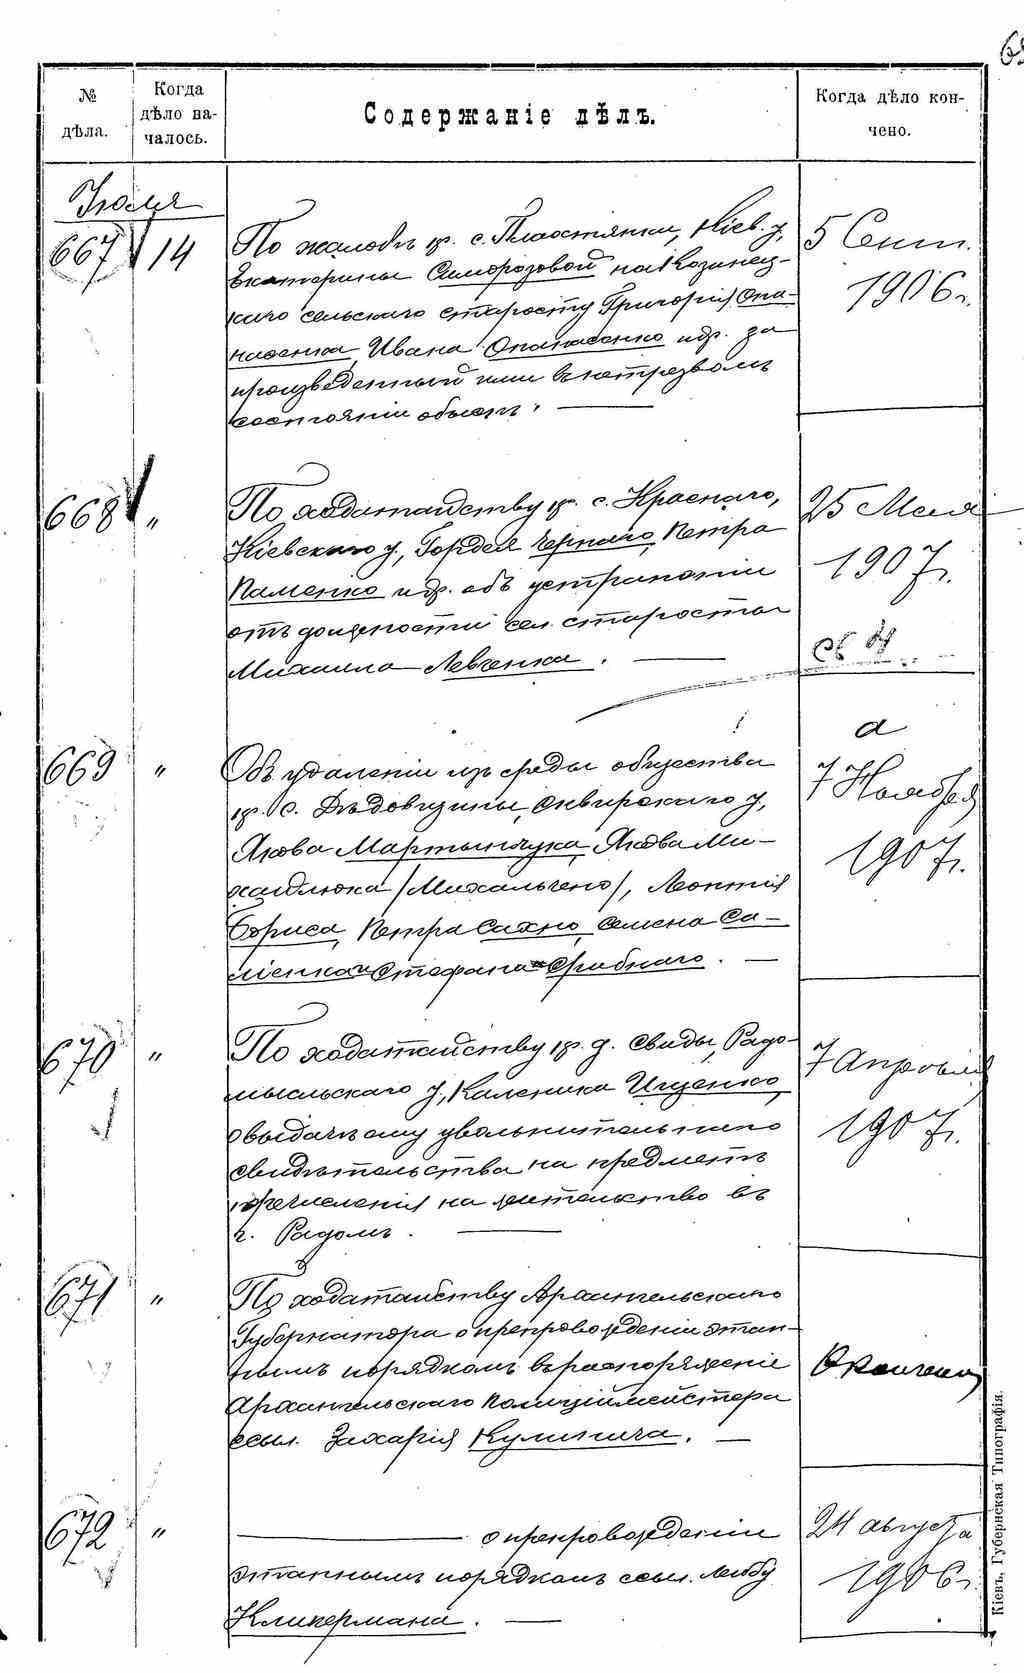 № дѣла.
Когда дѣло началось.
Содержаніе дѣлъ.
Когда дѣло кончено.
Іюля
667 14
По жалобѣ кр. с. Плюстянки, Кіев. у,
Екатерины Саморозовой на Козинец-
каго сельскаго старосту Григорія Опа-
насенка, Ивана Опанасенко и др. за
произведенный ими въ нетрезвомъ
состояніи обыскъ.
5 Сент.
1906 г.
668 "
По ходатайству кр. с. Краснаго,
Кіевскаго у., Гордея Чернаго, Петра
Паменко и др. объ устраненіи
отъ должности сел. старосты
Михаила Левченка.
25 Мая
1907 г.
669 "
Объ удаленіи изъ среды общества
кр. с. Дѣдовщины, Сквирскаго у,
Якова Мартынчука, Якова Ми-
хайлюка /Михальченко/, Леонтія
Бориса, Петра Сахно, Семена Са-
ліенка и Стефана Срибнаго.
а
7 Ноября
1907 г.
670 "
По ходатайству кр. д. Свиды, Радо-
мысльскаго у, Каленика Ищенко,
о выдачѣ ему увольнительнаго
свидѣтельства на предметъ
перечисленія на жительство въ
г. Радомъ.
7 Апрѣля
1907 г.
671 "
По ходатайству Архангельскаго
Губернатора о препровожденіи этап-
нымъ порядкомъ въ распоряженіе
Архангельскаго Полиціймейстера
ссыл. Захарія Кулинича.
Окончено
672 "
о препровожденіи
этапнымъ порядкомъ ссыл. Лейбу
Клипермана.
24 августа
1906 г.
Кіевъ, Губернская Типографія.